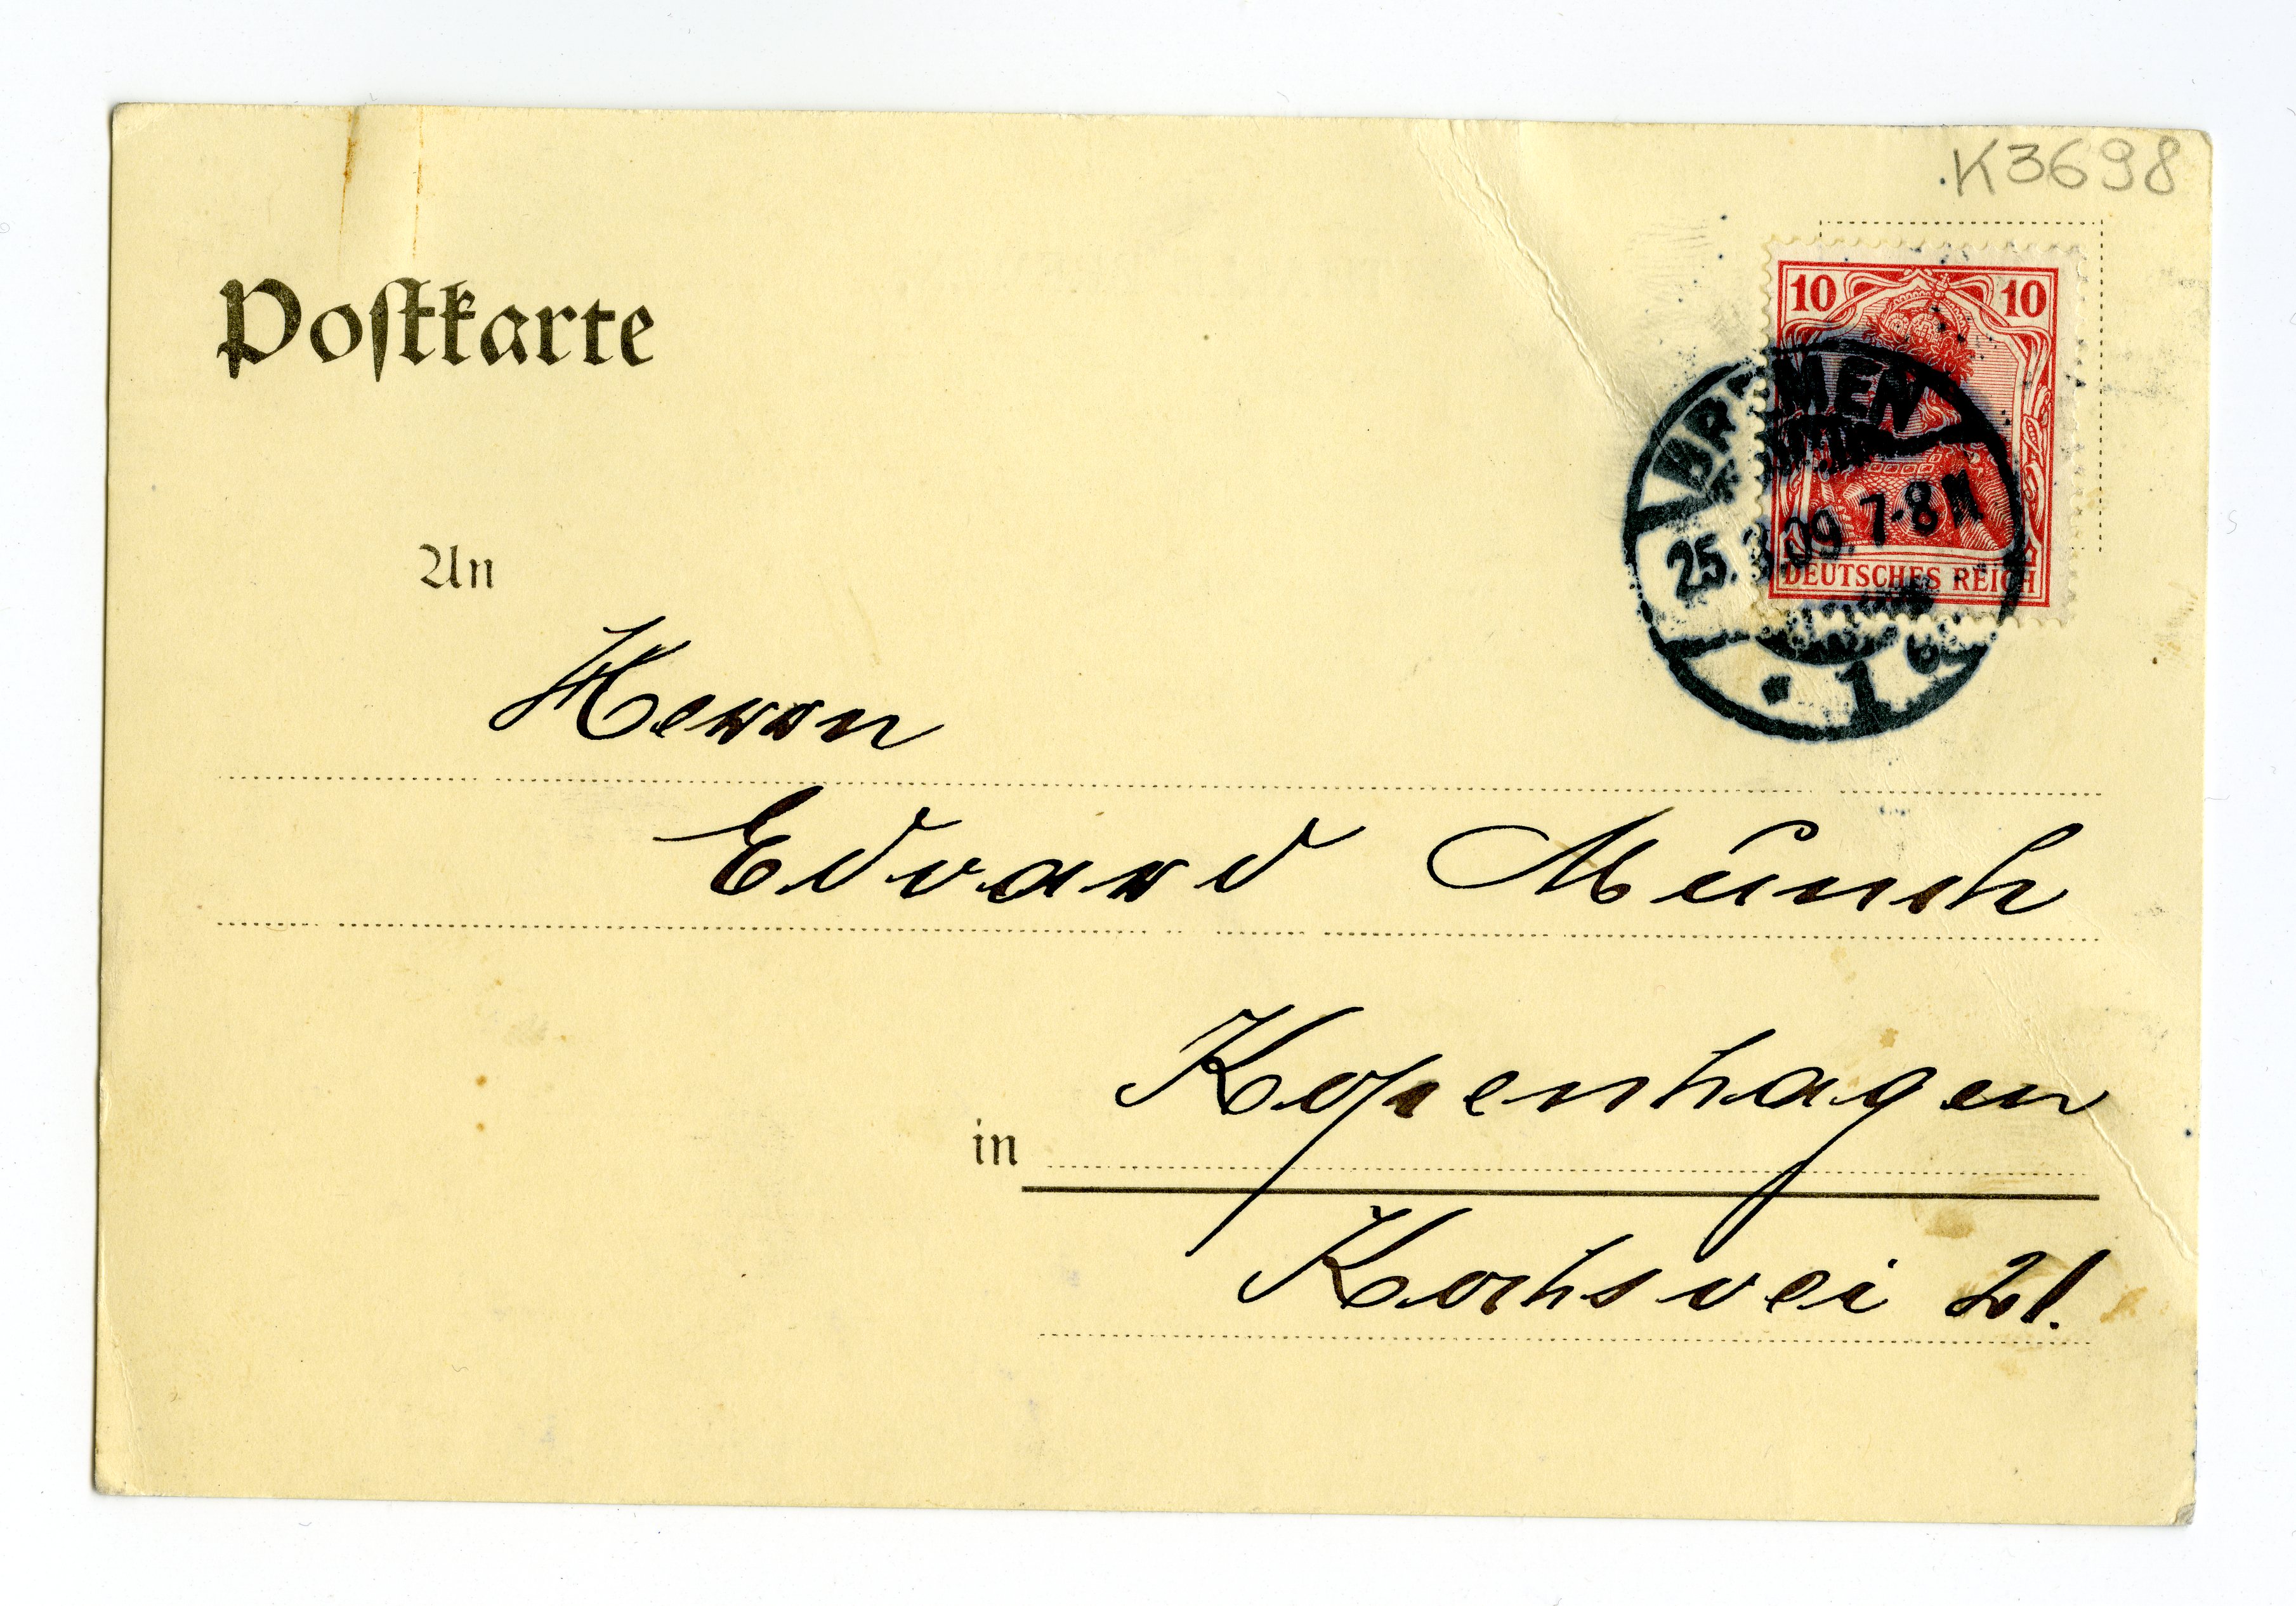 K3698
Postkarte
10 10
BREMEN
25.3.09. 7-8 N
DEUTSCHES REICH
* 1
An
Herrn
Edvard Munch
Kopenhagen
in
Kochsvei 21.